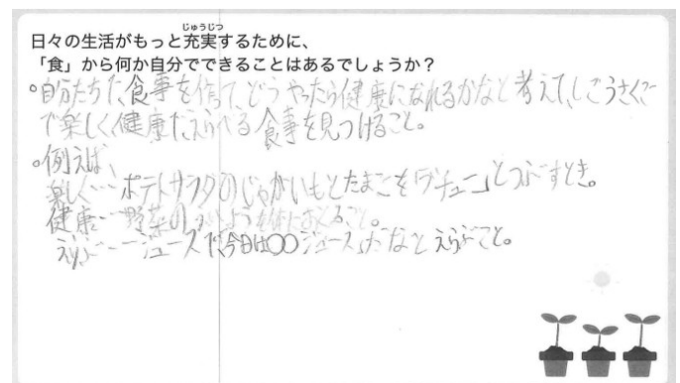 じゅうじつ
日々の生活がもっと充実するために、
「食」から何か自分でできることはあるでしょうか？
。自分たちで、食事を作って、どうやったら健康になれるかなと考えて、しこうさくご
で楽しく、健康でえらべる食事を見つけること。
。例えば、
楽しく…ポテトサラダのじゃがいもとたまごを「グチュー」とつぶすとき。
健康…野菜のえいようを体におくること。
えらぶ…ジュースで、「今日は○○ジュース」だなとえらぶこと。